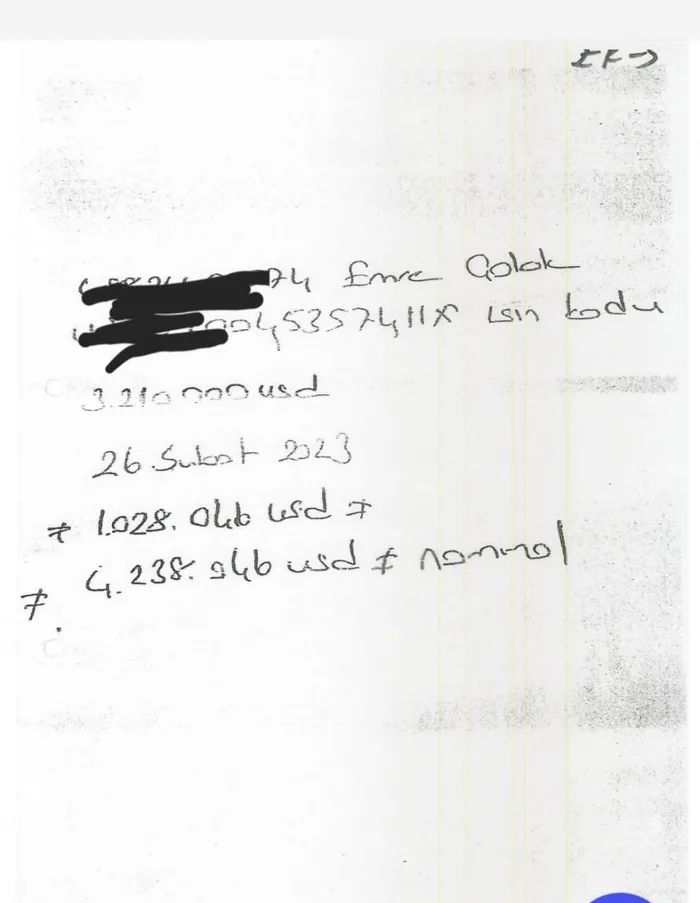 74 Emre Çolak
0045357411X ısin kodu
3.210 000 usd
26 Şubat 2023
≠ 1.028. 046 usd ≠
≠ 4.238. 946 usd ≠ nominal